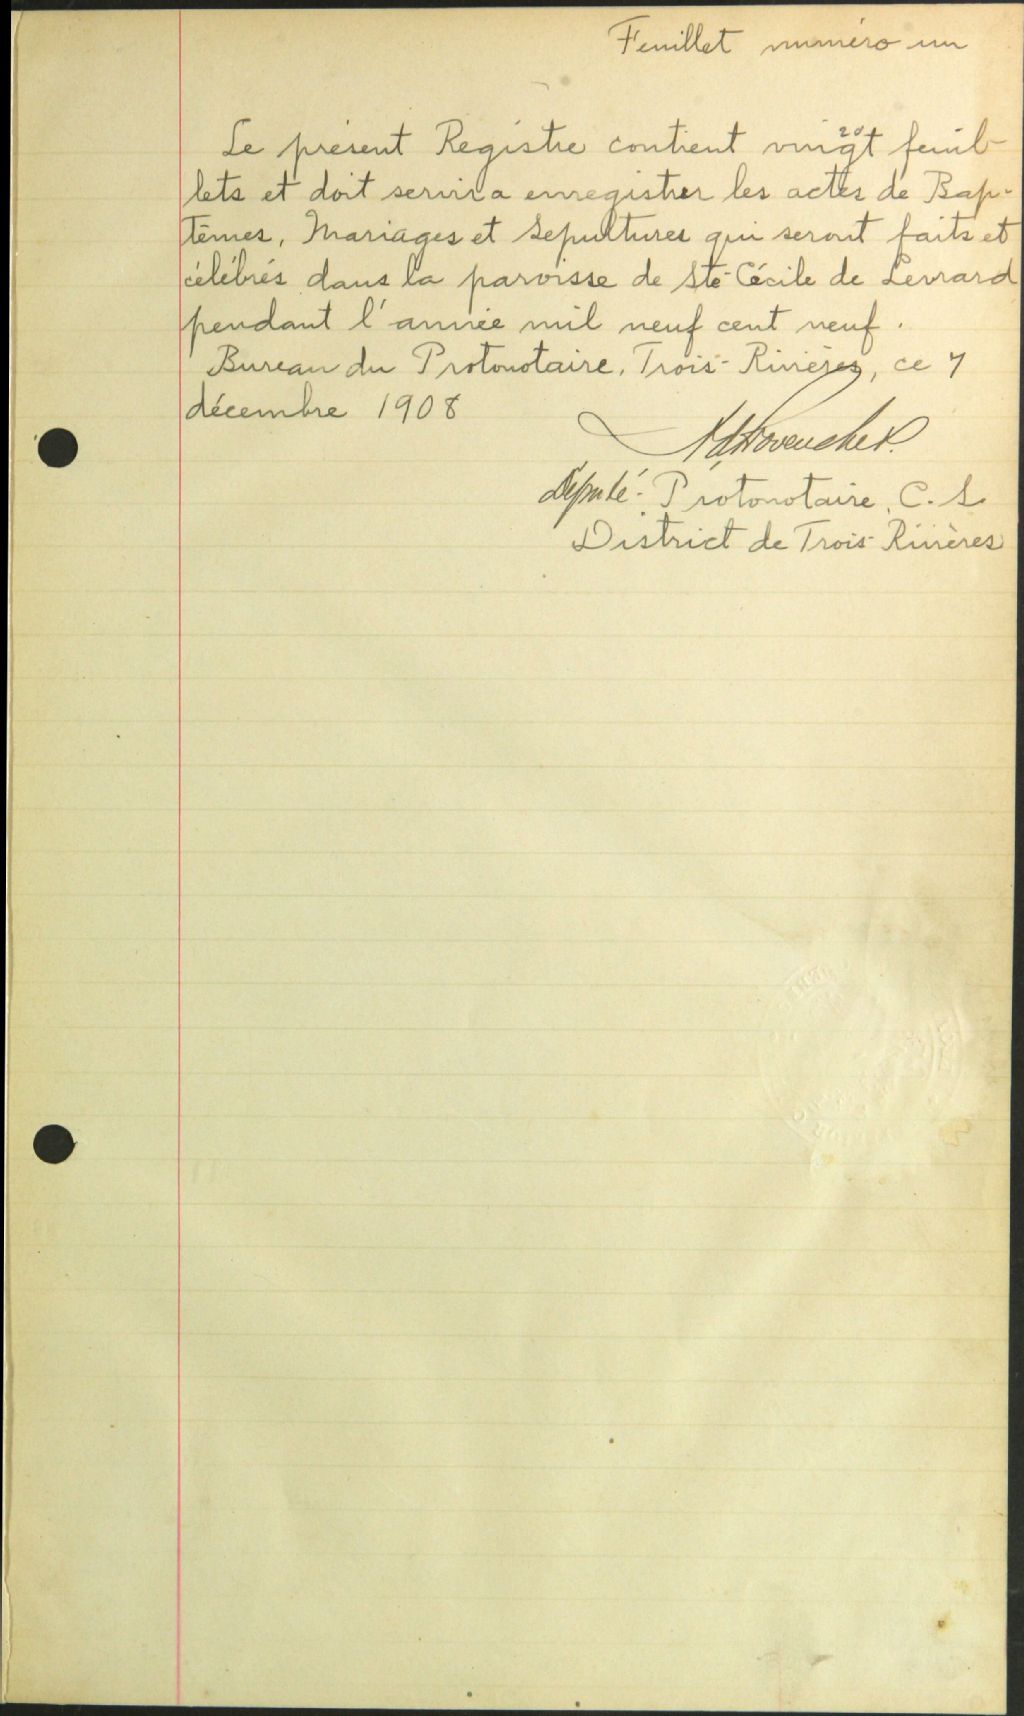 Feuillet numéro un
20
Le présent Registre contient vingt feuil-
lets et doit servir a enregistrer les actes de Bap-
têmes, Mariages et Sepultures qui seront faits et
célébrés dans la paroisse de Ste-Cécile de Levrard
pendant l'année mil neuf cent neuf.
Bureau du Protonotaire, Trois-Rivières, ce 7
décembre 1908
Provencher
Député-Protonotaire, C. S.
District de Trois-Rivières